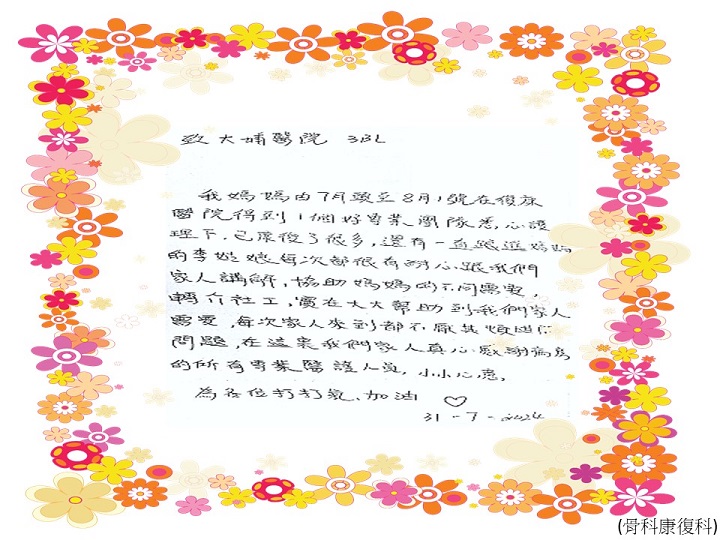 致大埔醫院 3BL
我媽媽由7月頭至8月1號在復康
醫院得到1個好專業團隊悉心護
理下,已康復了很多,還有一直跟進媽媽
的李姑娘每次都很有耐心跟我們
家人講解,協助媽媽的不同需要,
轉介社工,實在大大幫助到我們家人
需要,每次家人來到都不厭其煩
問題,在這裏我們家人真心感謝
的所有專業醫護人員,小小心意,
為各位打打氣、加油 ♡
31-7-2024
(骨科康復科)